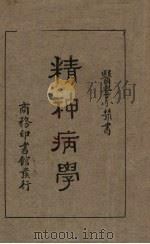 醫學小叢書
精神病學
商務印書館發行